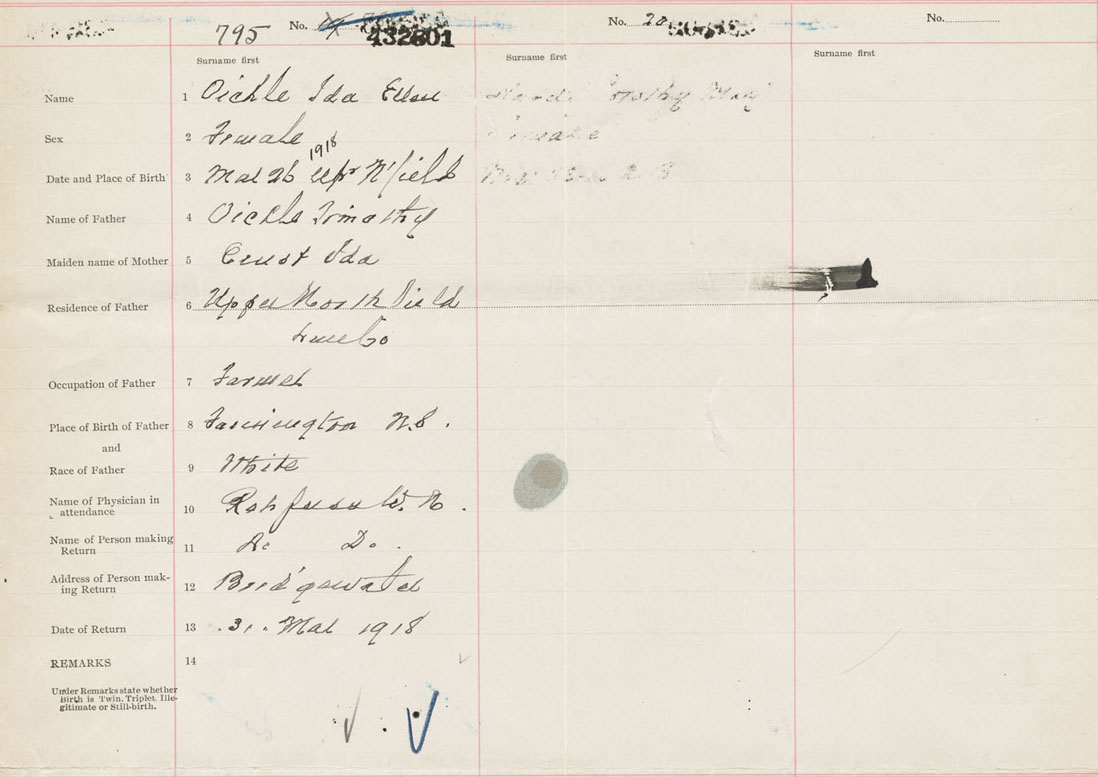 795 No. 432801 No. 20 No.
Surname first Surname first Surname first
Name 1 Oickle Ida Ellen
Sex 2 Female
1918
Date and Place of Birth 3 Mar 26 Upr N'field
Name of Father 4 Oickle Timothy
Maiden name of Mother 5 Ida
Residence of Father 6 Upper North Field
Lun Co
Occupation of Father 7 Farmer
Place of Birth of Father 8 Farmington N.S.
and
Race of Father 9 White
Name of Physician in
attendance 10 W. N.
Name of Person making
Return 11 Do Do.
Address of Person mak-
ing Return 12 Bridgewater
Date of Return 13 31. Mar 1918
REMARKS 14
Under Remarks state whether
Birth is Twin, Triplet, Ille-
gitimate or Still-birth.